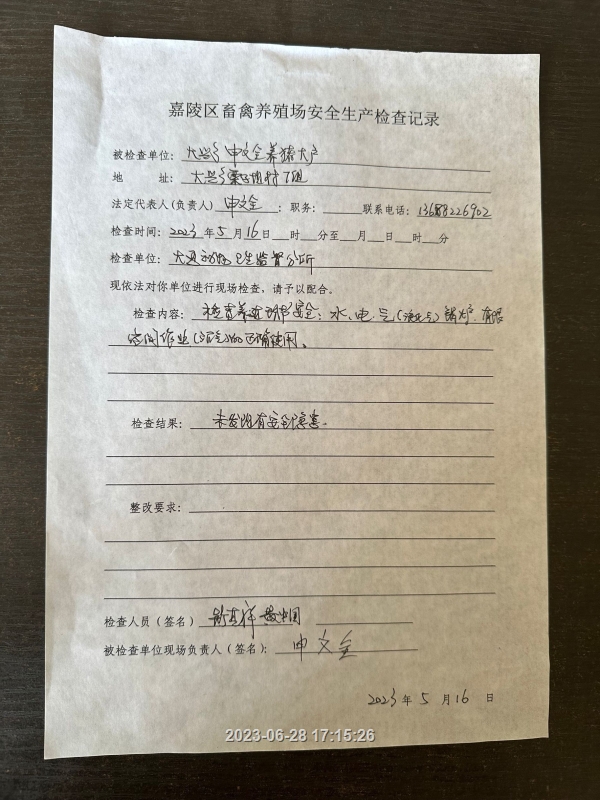 嘉陵区畜禽养殖场安全生产检查记录
被检查单位：大兴乡申文全养猪大户
地 址：大兴乡
法定代表人（负责人）申文全：职务： 联系电话：
检查时间：2023年5月16日 时 分至 月 日 时 分
检查单位：大兴动物卫生监督分所
现依法对你单位进行现场检查，请予以配合。
检查内容：检查养殖场安全：水、电、气（液化气）锅炉、有限
空间作业（沼气）的正确使用。
检查结果：未发现有安全隐患。
整改要求：
检查人员（签名）
被检查单位现场负责人（签名）：申文全
2023年5月16日
2023-06-28 17:15:26